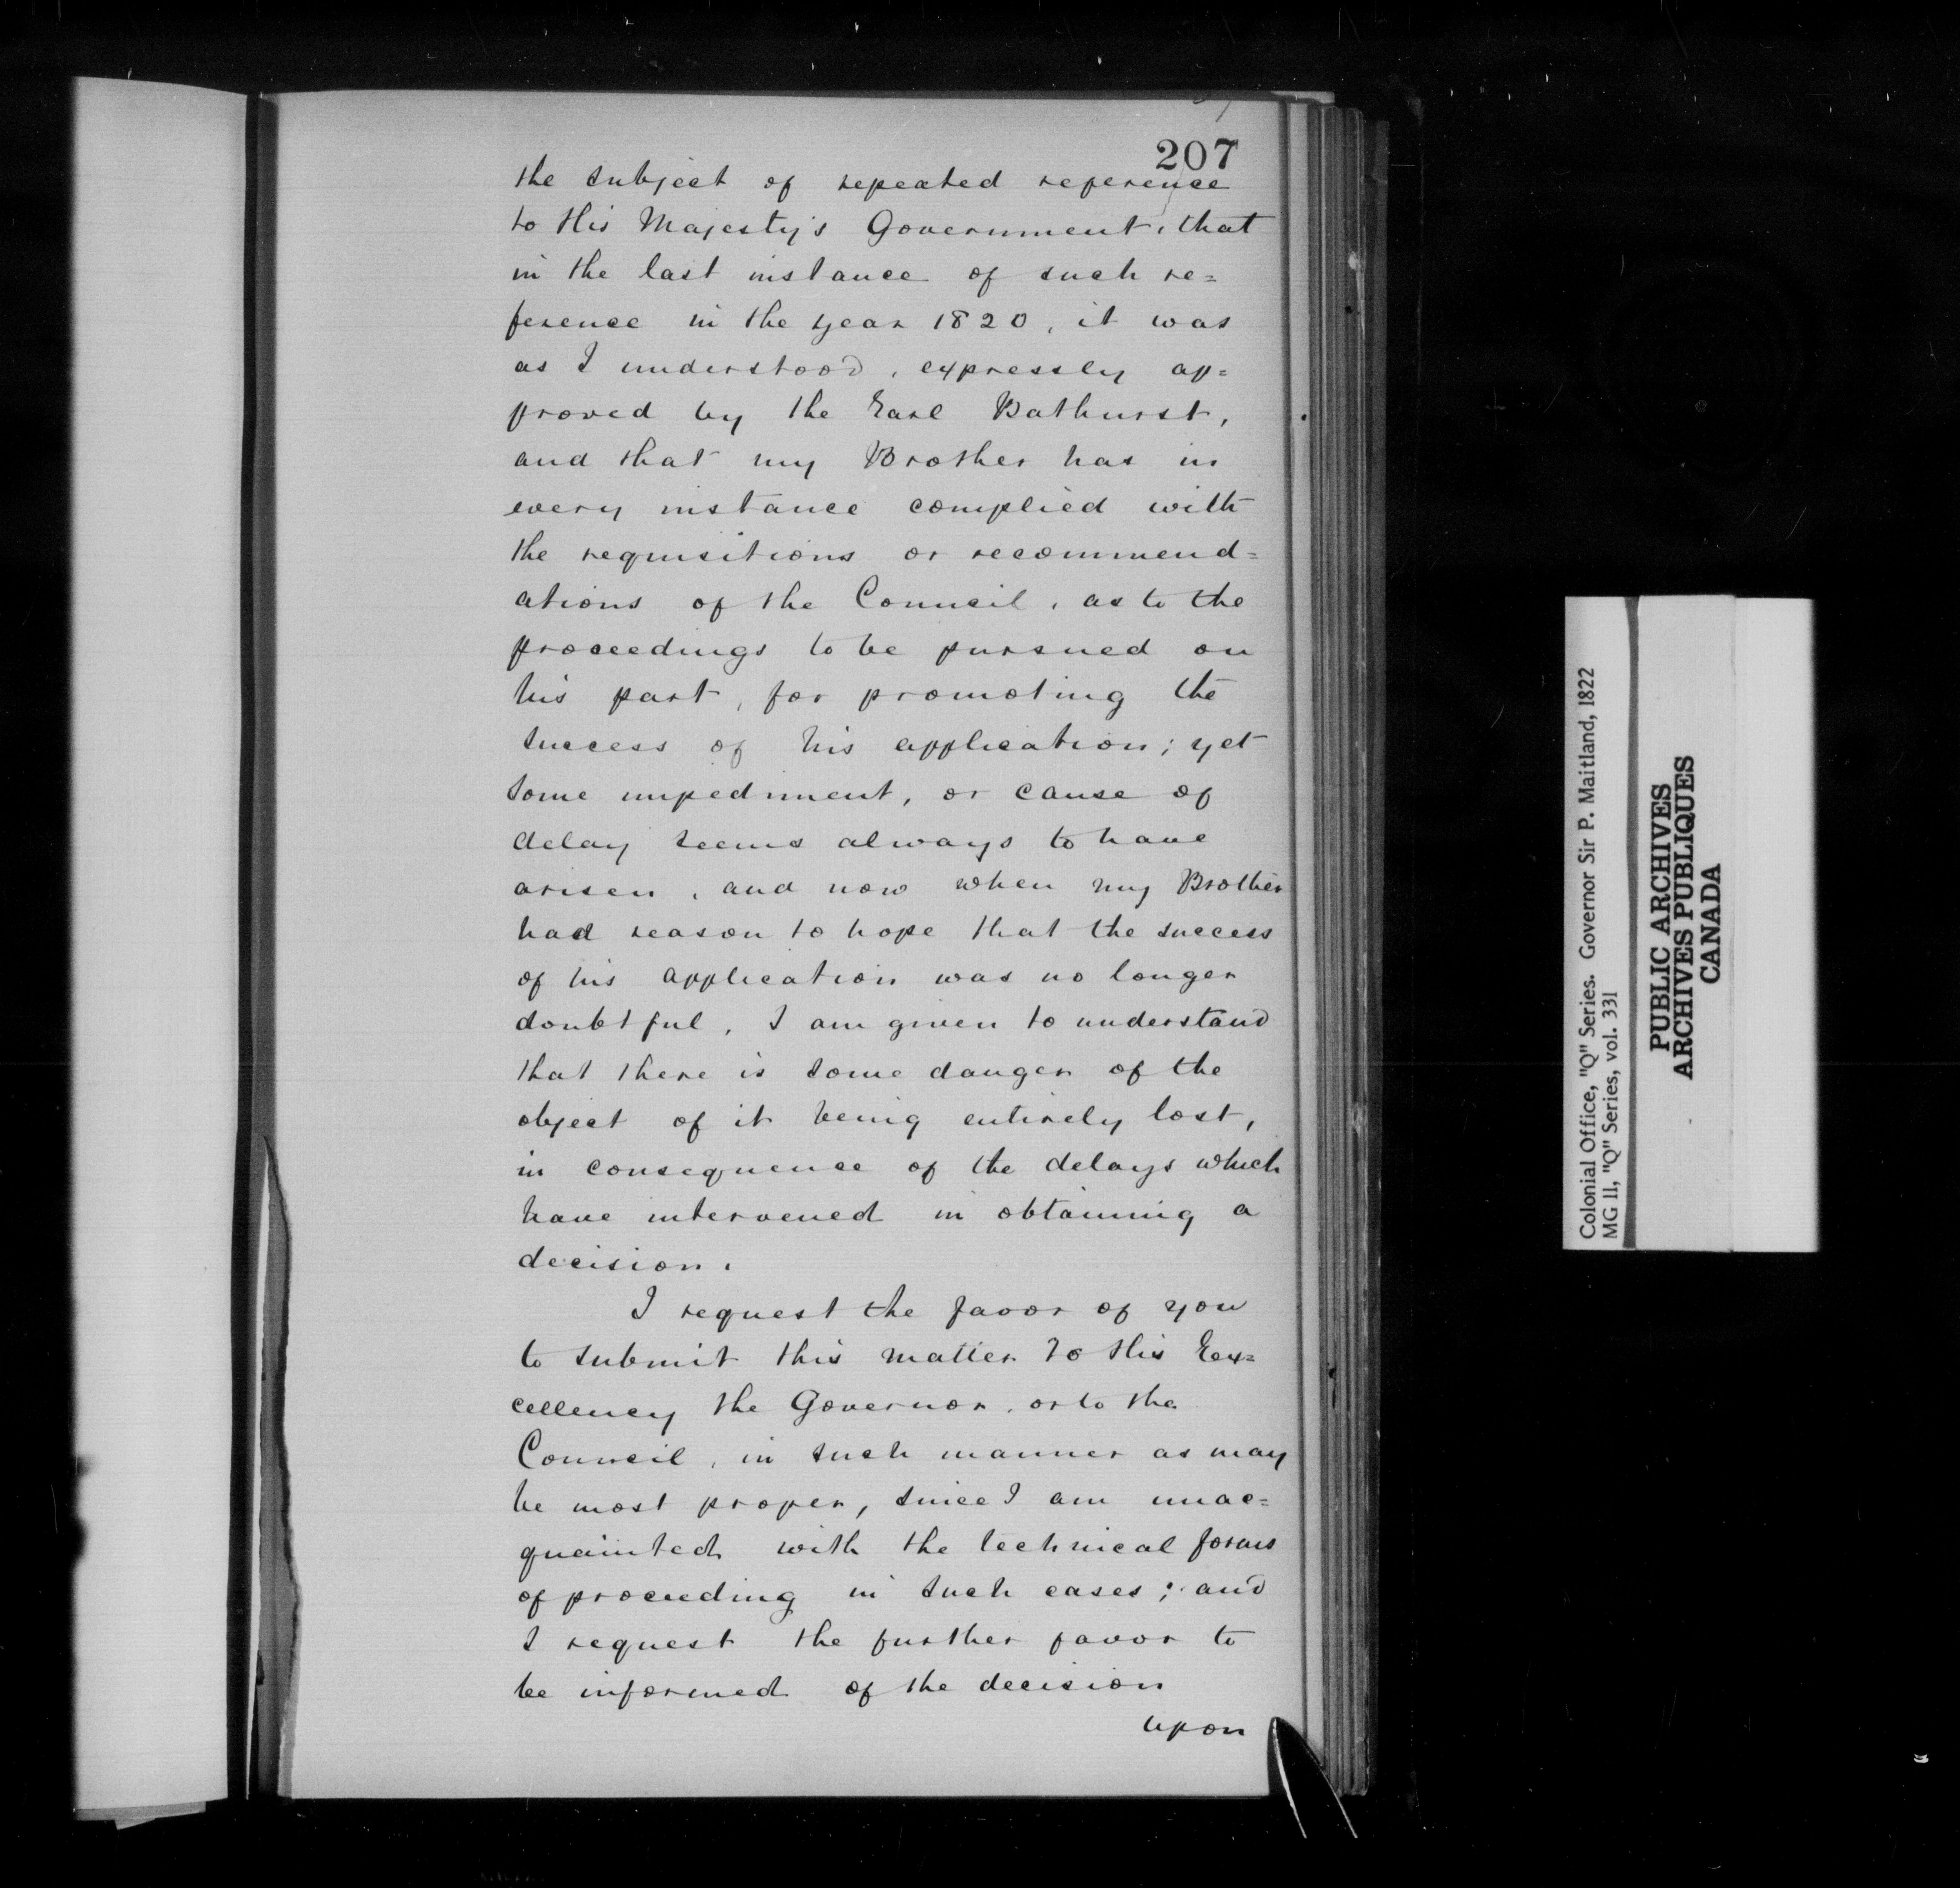 207
the subject of repeated reference
to His Majesty's Government, that
in the last instance of such re=
ference in the year 1820, it was
as I understood, expressly ap=
proved by the Earl Bathurst,
and that my Brother has in
every instance complied with
the requisitions or recommend=
ations of the Council, as to the
proceedings to be pursued on
his part, for promoting the
success of his application; yet
some impediment, or cause of
delay seems always to have
arisen, and now when my Brother
had reason to hope that the success
of his application was no longer
doubtful, I am given to understand
that there is some danger of the
object of it being entirely lost,
in consequence of the delays which
have intervened in obtaining a
decision.
I request the favor of you
to submit this matter to His Ex=
cellency the Governor, or to the
Council, in such manner as may
be most proper, since I am unac=
quainted with the technical forms
of proceeding in such cases; and
I request the further favor to
be informed of the decision
upon
Colonial Office, "Q" Series. Governor Sir P. Maitland, 1822
MG 11, "Q" Series, vol. 331
PUBLIC ARCHIVES
ARCHIVES PUBLIQUES
CANADA